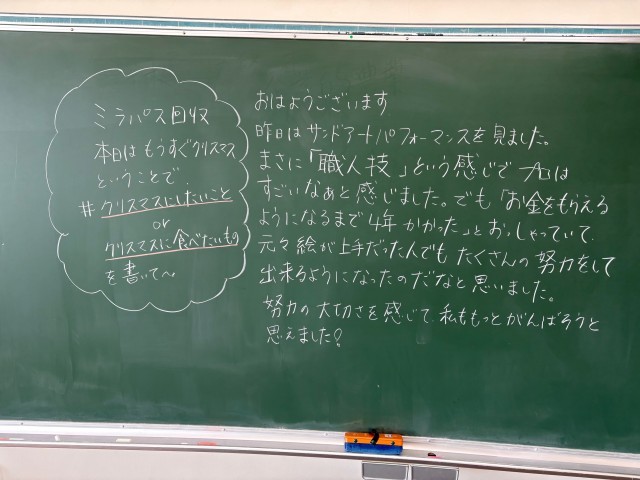 ミラパス回収
本日は もうすぐクリスマス
ということで
#クリスマスにしたいこと
or
クリスマスに食べたいもの
を書いて～
おはようございます
昨日は サンドアートパフォーマンスを見ました。
まさに「職人技」という感じで プロは
すごいなぁと感じました。でも「お金をもらえる
ようになるまで 4年 かかった」とおっしゃっていて、
元々 絵が上手だった人でも たくさんの 努力をして
出来るようになったのだなと思いました。
努力の 大切さを感じて、私ももっとがんばろうと
思えました!